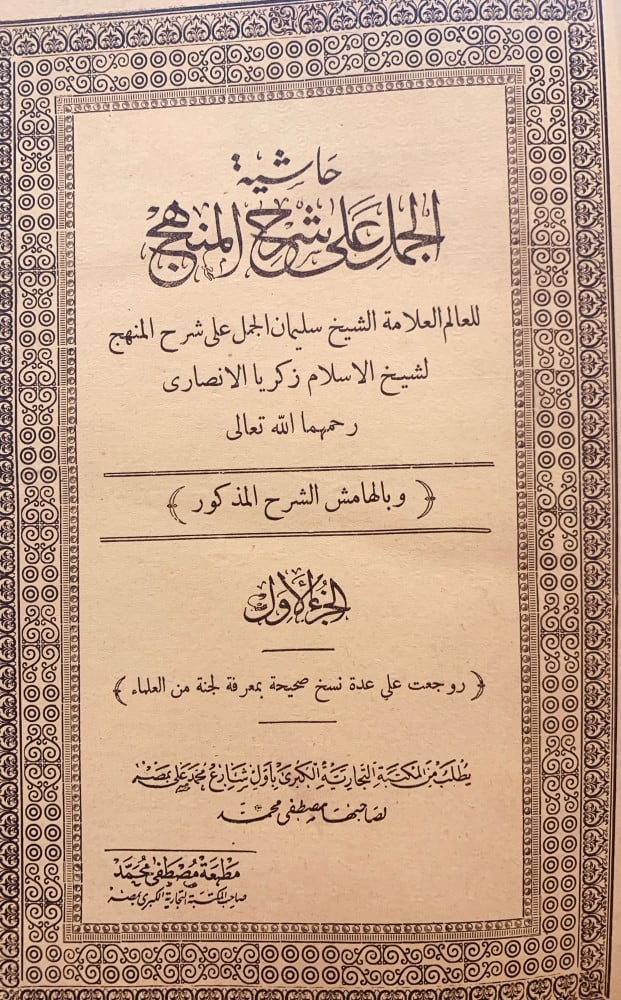 حاشية
الجمل على شرح المنهج
للعالم العلامة الشيخ سليمان الجمل على شرح المنهج
لشيخ الاسلام زكريا الانصارى
رحمهما الله تعالى
( وبالهامش الشرح المذكور )
الجزء الأول
( روجعت علي عدة نسخ صحيحة بمعرفة لجنة من العلماء )
يُطلب من المكتبة التجارية الكبرى بأول شارع محمد على بمصر
لصاحبها مصطفى محمد
مطبعة مصطفى محمد
صاحب المكتبة التجارية الكبرى بمصر